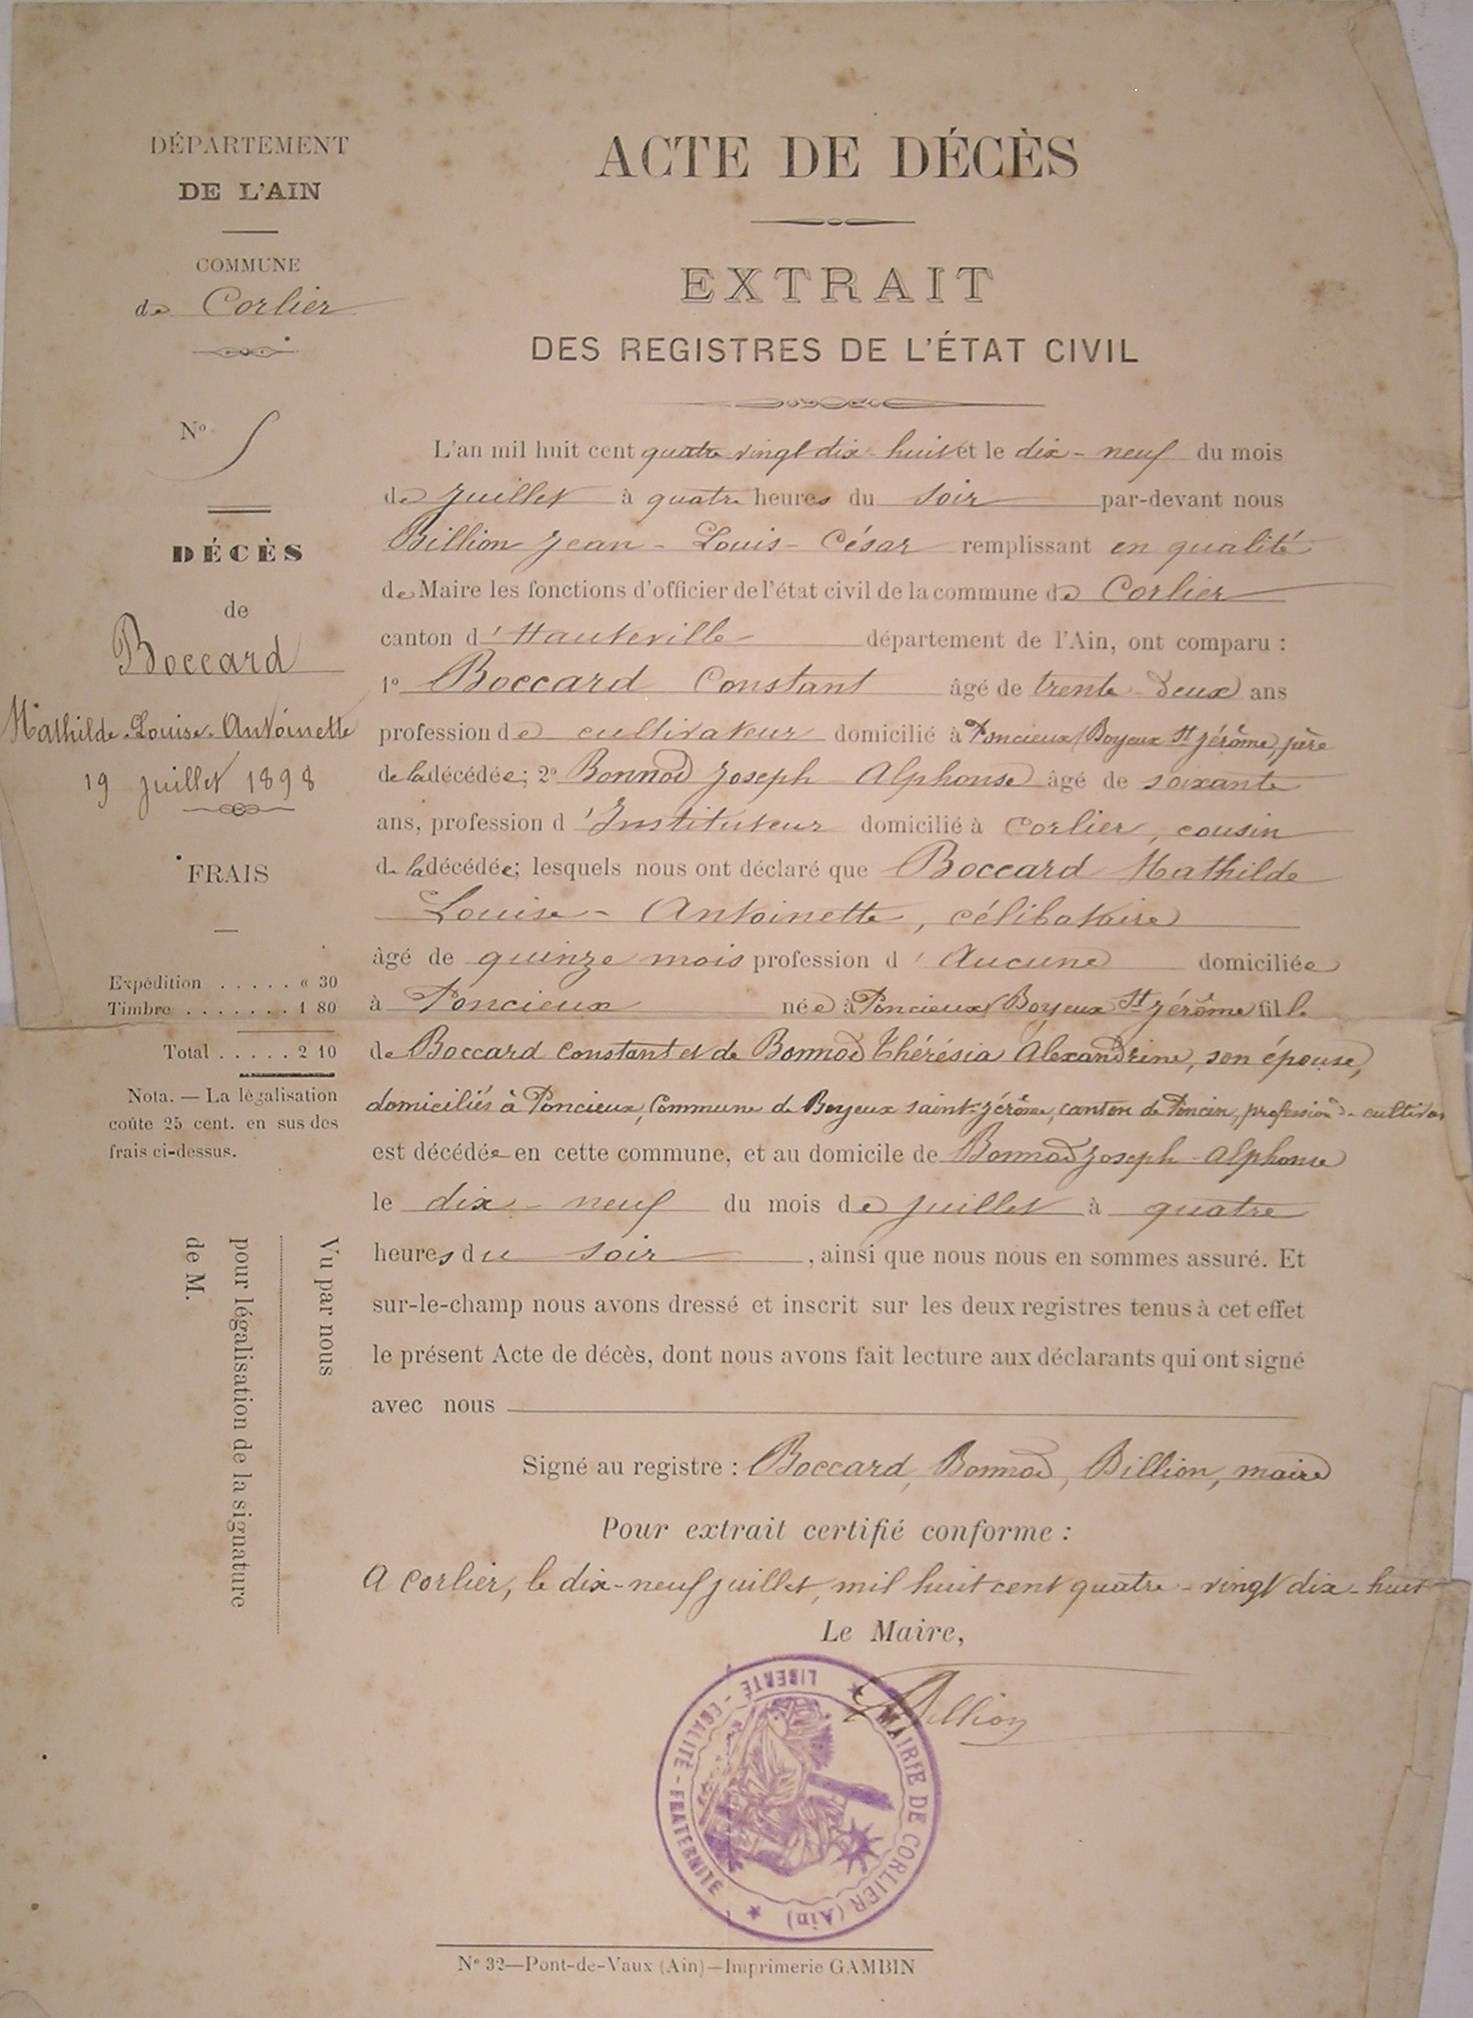 DÉPARTEMENT
DE L'AIN
COMMUNE
de Corlier
No 5
DÉCÈS
de
Boccard
Mathilde-Louise-Antoinette
19 juillet 1898
FRAIS
Expédition . . . . . « 30
Timbre . . . . . . . 1 80
Total . . . . . 2 10
Nota. — La légalisation
coûte 25 cent. en sus des
frais ci-dessus.
Vu par nous
pour légalisation de la signature
de M.
ACTE DE DÉCÈS
EXTRAIT
DES REGISTRES DE L'ÉTAT CIVIL
L'an mil huit cent quatre vingt dix-huit et le dix-neuf du mois
de juillet à quatre heures du soir par-devant nous
Billion Jean-Louis-César remplissant en qualité
de Maire les fonctions d'officier de l'état civil de la commune de Corlier
canton d'Hauteville département de l'Ain, ont comparu :
1o Boccard Constant âgé de trente-deux ans
profession de cultivateur domicilié à Poncieux (Boyeux St Jérôme), père
de la décédée; 2o Bonnod Joseph Alphonse âgé de soixante
ans, profession d'Instituteur domicilié à Corlier, cousin
de la décédée; lesquels nous ont déclaré que Boccard Mathilde
Louise-Antoinette, célibataire
âgé de quinze mois profession d'Aucune domiciliée
à Poncieux née à Poncieux (Boyeux St Jérôme fille
de Boccard Constant et de Bonnod Thérésia Alexandrine, son épouse,
domiciliés à Poncieux, Commune de Boyeux saint-Jérôme, canton de Poncin, profession de cultivat
est décédée en cette commune, et au domicile de Bonnod Joseph-Alphonse
le dix-neuf du mois de juillet à quatre
heures du soir , ainsi que nous nous en sommes assuré. Et
sur-le-champ nous avons dressé et inscrit sur les deux registres tenus à cet effet
le présent Acte de décès, dont nous avons fait lecture aux déclarants qui ont signé
avec nous
Signé au registre : Boccard, Bonnod, Billion, maire
Pour extrait certifié conforme :
A Corlier, le dix-neuf juillet, mil huit cent quatre-vingt dix-huit
Le Maire,
Billion
MAIRIE DE CORLIER (Ain)
LIBERTÉ - EGALITÉ - FRATERNITÉ
No 32—Pont-de-Vaux (Ain)—Imprimerie GAMBIN